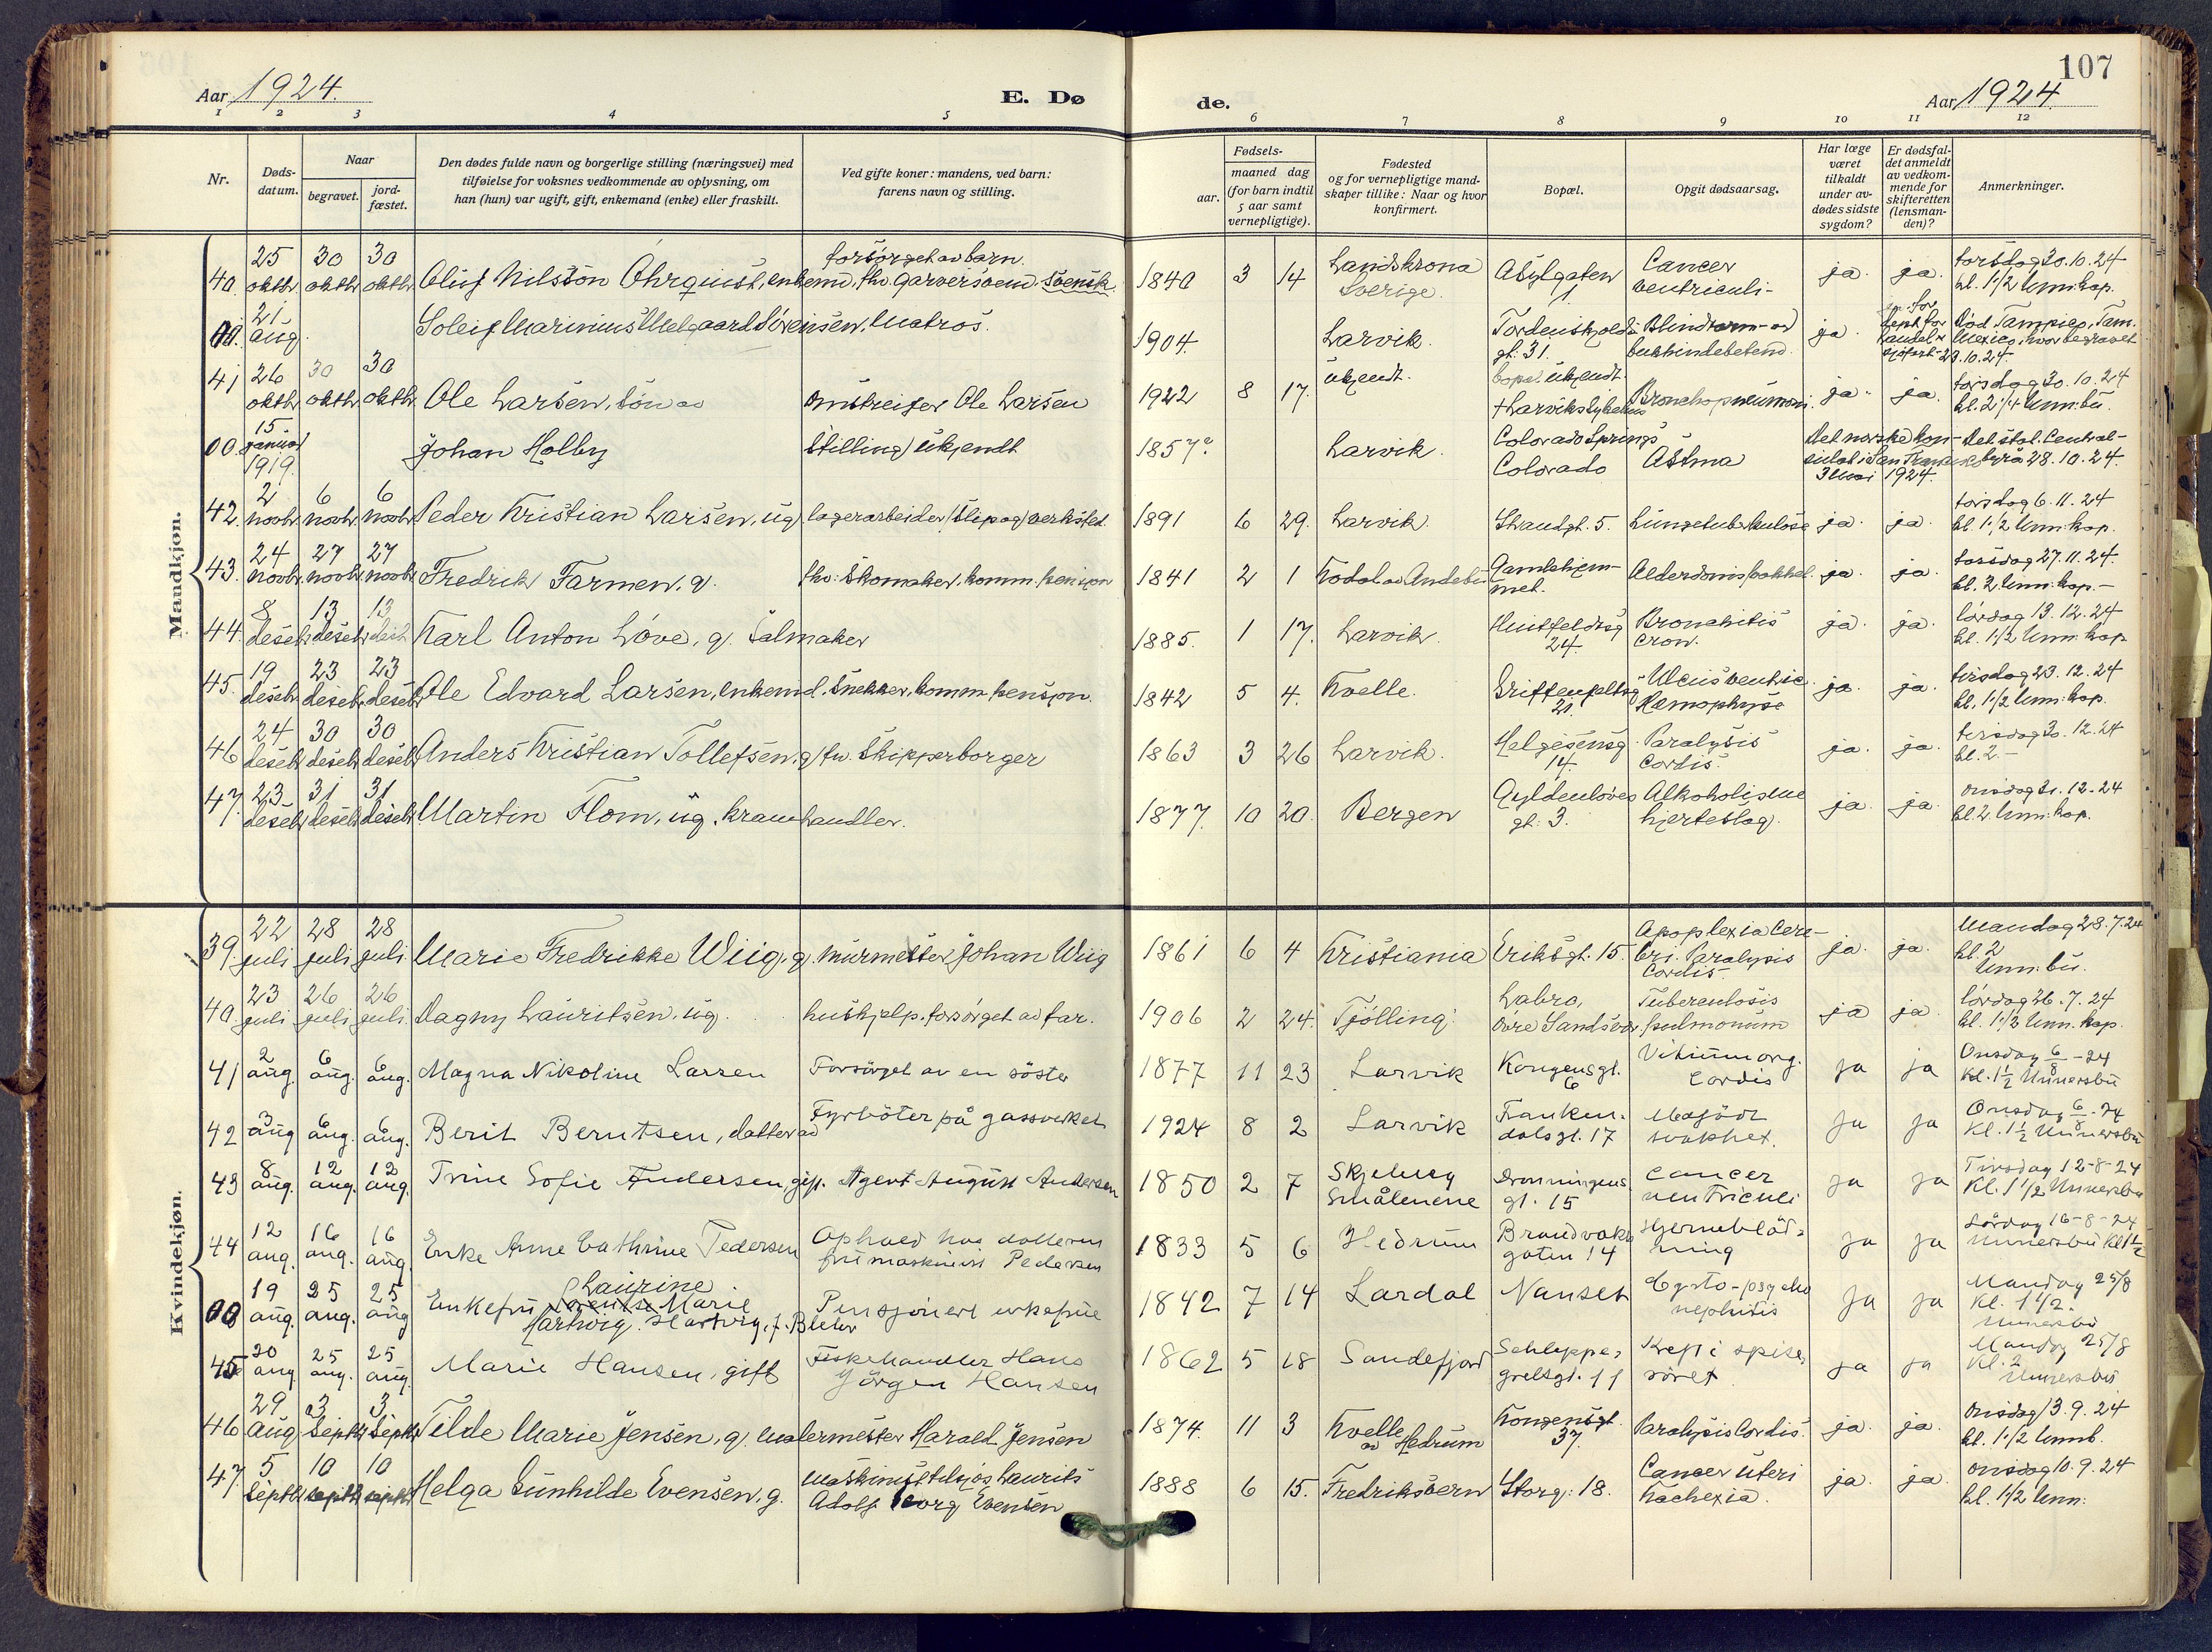 107
Aar 1924.
E. Dø
de.
Aar 1924
1 2 3 4 5 6 7 8 9 10 11 12
Nr.
Døds-
datum.
Naar
begravet.
jord-
fæstet.
Den dødes fulde navn og borgerlige stilling (næringsvei) med
tilføielse for voksnes vedkommende av oplysning, om
han (hun) var ugift, gift, enkemand (enke) eller fraskilt.
Ved gifte koner: mandens, ved barn:
farens navn og stilling.
Fødsels-
aar.
maaned dag
(for barn indtil
5 aar samt
vernepligtige).
Fødested
og for vernepligtige mand-
skaper tillike: Naar og hvor
konfirmert.
Bopæl.
Opgit dødsaarsag.
Har læge
været
tilkaldt
under av-
dødes sidste
sygdom?
Er dødsfal-
det anmeldt
av vedkom-
mende for
skifteretten
(lensman-
den)?
Anmerkninger.
Mandkjøn.
40. 25 oktbr 30 oktbr 30 oktbr Oluf Nilsson Öhrquist, enkem. fhv. garversvend. svensk forsørget av barn. 1840 3 14 Landskrona Sverige. Asylgaten 1. Cancer ventriculi- ja. ja. torsdag 30.10.24 kl. 1 1/2 Unn: kap.
00. 21 aug. Soleif Marinius Melgaard Sörensen, Matros. 1904. Larvik. Tordenskjolds gt. 31. Blindtarm- og bukhindebetend. ja. Død Tampico, Tam. Mexico, hvor begravet 23.10.24
41 26 oktbr 30 oktbr 30 oktbr Ole Larsen, sön av omstreifer Ole Larsen 1922 8 17. ukjendt. bopæl ukjendt. † Larviks sykehus Bronchopneumoni. ja. ja. torsdag 30.10.24 kl. 2 1/4 Unn: bü.
00. 15 januar 1919. Johan Holby Stilling ukjendt 1857? Larvik. Colorado Springs Colorado Astma Det norske konsulat i San Francisco 3 mai 1924. Det stat. Central-byrå 28.10.24.
42. 2 novbr 6 novbr 6 novbr Peder Kristian Larsen, ug. lagerarbeider (Slip og verksted. 1891 6 29. Larvik. Strandgt. 5. Lungetuberkulose ja. ja. torsdag 6.11.24 kl. 1 1/2 Unn: kap.
43. 24 novbr. 27 novbr. 27 novbr Fredrik Farmen. g. fhv: Skomaker, komm. pensjon 1841 2 1 Kodal av Andebu Gamlehjemmet. Alderdoms ja. ja. torsdag 27.11.24. kl. 2 Unn: kap.-
44. 8 desebr 13 desebr 13 Karl Anton Løve, g. Salmaker 1885. 1 17. Larvik. Huitfeldtsg 24. Bronchitis cron. ja. ja. lördag 13.12.24 kl. 1 1/2 Unn: kap
45. 19 desebr 23 desebr. 23 desebr Ole Edvard Larsen, enkemd. Snekker, komm. pensjon. 1842 5 4. Kvelle. Griffenfeldtsg 21. Ulcus ventric. Hæmophyse ja. ja. tirsdag 23.12.24 kl. 1 1/2 Unn: kap.
46 24 desebr 30 desebr 30 desebr Anders Kristian Tollefsen. g. fhv. Skipperborger 1863 3 26 Larvik. Helgesensg. 14. Paralysis Cordis. ja. ja. tirsdag 30.12.24 kl. 2.-
47. 23 desebr 31 desebr 31 desebr Martin Flom, ug. kramhandler. 1877. 10 20. Bergen Gyldenløves gt: 3. Alkoholisme hjerteslag. ja. ja. onsdag 31.12.24 kl. 2 Unn: kap.
Kvindekjøn.
39. 22 juli 28 juli 28 juli Marie Fredrikke Wiig, g. murmester Johan Wiig 1861 6 4 Kristiania Eriksgt. 15. Apoplexia Cerebri. Paralysis Cordis. ja. ja. Mandag 28.7.24 kl. 2 Unn: bü.
40. 23 juli 26 juli 26 juli Dagny Lauritsen. ug. hushjelp. forsørget av far. 1906 2 24. Tjölling Labro, övre Sandsvær. Tuberculosis pulmonum ja ja. lördag 26.7.24 kl. 1 1/2 Unn. kap.
41 2 aug. 6 aug. 6 aug. Magna Nikoline Larsen Forsörget av en söster 1877 11 23 Larvik Kongensgt. 6 Vitium org. Cordis ja ja Onsdag 6/8-24 Kl. 1 1/2 Unnersbü
42 3 aug 6 aug. 6 aug. Berit Berntsen, datter av Fyrböter på gassverket 1924 8 2 Larvik Frankendalsgt. 17 Medfödt svakhet. ja ja Onsdag 6/8-24 Kl. 1 1/2 Unnersbü
43 8 aug. 12 aug. 12 aug. Trine Sofie Andersen, gift. Agent August Andersen 1850 2 7 Skjeberg Smålenene Dronningens gt. 15 Cancer ventriculi ja ja Tirsdag 12-8-24 Kl. 1 1/2 Unnersbu
44 12 aug. 16 aug. 16 aug. Enke Anne Cathrine Pedersen Ophold hos datteren frü maskinist Pedersen 1833 5 6 Hedrum Brandvaktsgaten 14 Hjerneblödning ja ja Lördag 16-8-24 Unnersbü Kl 1 1/2
00 19 aug. 25 aug. 25 aug Enkefrü Laurine Marie Hartwig. Hartvig, f. Blehr Pensjonert enkefrue 1842 7 14 Lardal Nanset Cysto-pyelo nephritis ja ja Mandag 25/8 Kl. 1 1/2. Unnersbü
45 20 aug 25 aug. 25 aug. Marie Hansen, gift Fiskehandler Hans Jörgen Hansen 1862 5 18 Sandefjord Schleppegrelsgt. 11 Kreft i spiseröret ja ja Mandag 25/8 Kl. 2 Unnersbü
46 29 aug 3 septbr 3 septbr Tilde Marie Jensen, g. malermester Harald Jensen 1874. 11 3 Kvelle av Hedrum Kongensgt. 37. Paralysis Cordis. ja. ja. Onsdag 3.9.24 kl. 1 1/2 Unnb.
47. 5 septbr 10 septbr 10 septbr Helga Gunhilde Evensen, g. maskinist tilsjøs Laurits Adolf Georg Evensen 1888 6 15. Fredriksvern Storg: 18. Cancer uteri Kachexia. ja. ja. onsdag 10.9.24 kl. 1 1/2 Unn: